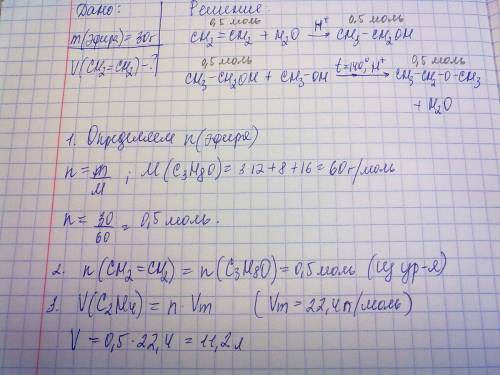 Дано:
Решение:
m(эфира) = 30г
V(CH2=CH2) - ?
0,5 моль 0,5 моль
CH2 = CH2 + H2O H+ → CH3 - CH2OH
0,5 моль 0,5 моль
CH3 - CH2OH + CH3 - OH t=140,° H+ → CH3 - CH2 - O - CH3
+ H2O
1. Определяем n(эфира)
n = m/M ; M(C3H8O) = 3·12 + 8 + 16 = 60г/моль
n = 30/60 = 0,5 моль.
2. n(CH2 = CH2) = n(C3H8O) = 0,5 моль (из ур-я)
3. V(C2H4) = n · Vm (Vm = 22,4л/моль)
V = 0,5 · 22,4 = 11,2л